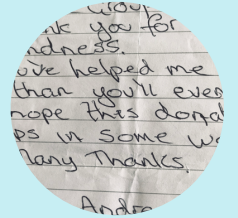 you for
ndness.
ve helped me
than you'll ever
hope this dona
ps in some w
Many Thanks.
Andre